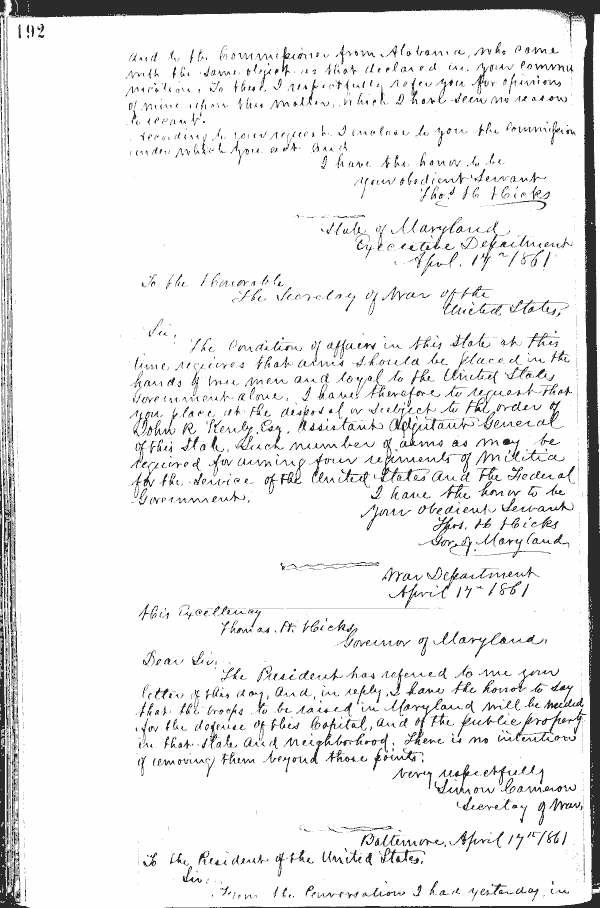 192
and to the Commissioner from Alabama, who came
with the same object as that declared in your commu
nication. To these I respectfully refer you for opinions
of mine upon this matter, which I have seen no reason
to recant.
According to your request I enclose to you the Commission
under which you act and
I have the honor to be
your obedient Servant
Thos H Hicks
State of Maryland
Executive Department
April 17th 1861
To the Honorable
The Secretay of War of the
United States,
Sir,
The Condition of affairs in this State at this
time requires that arms should be placed in the
hands of true men and loyal to the United States
Government alone. I have therefore to request that
you place at the disposal or subject to the order of
John R Kenly Esq. Assistant Adjutant General
of this State, Such number of arms as may be
required for arming four regiments of Militia
for the service of the United States and the Federal
Government.
I have the honor to be
your Obedient Servant
Thos. H Hicks
Gov. of Maryland
War Department
April 17th 1861
His Excellency
Thomas. H. Hicks,
Governor of Maryland.
Dear Sir,
The President has referred to me your
letter of this day, And, in reply, I have the honor to say
that the troops to be raised in Maryland will be needed
for the defense of this Capital, and of the public property
in that state and neighborhood, There is no intention
of removing them beyond those points.
very respectfully
Simon Cameron
Secretay of War,
Baltimore, April 17th 1861
To the President of the United States.
Sir.
From the Conversation I had yesterday, in